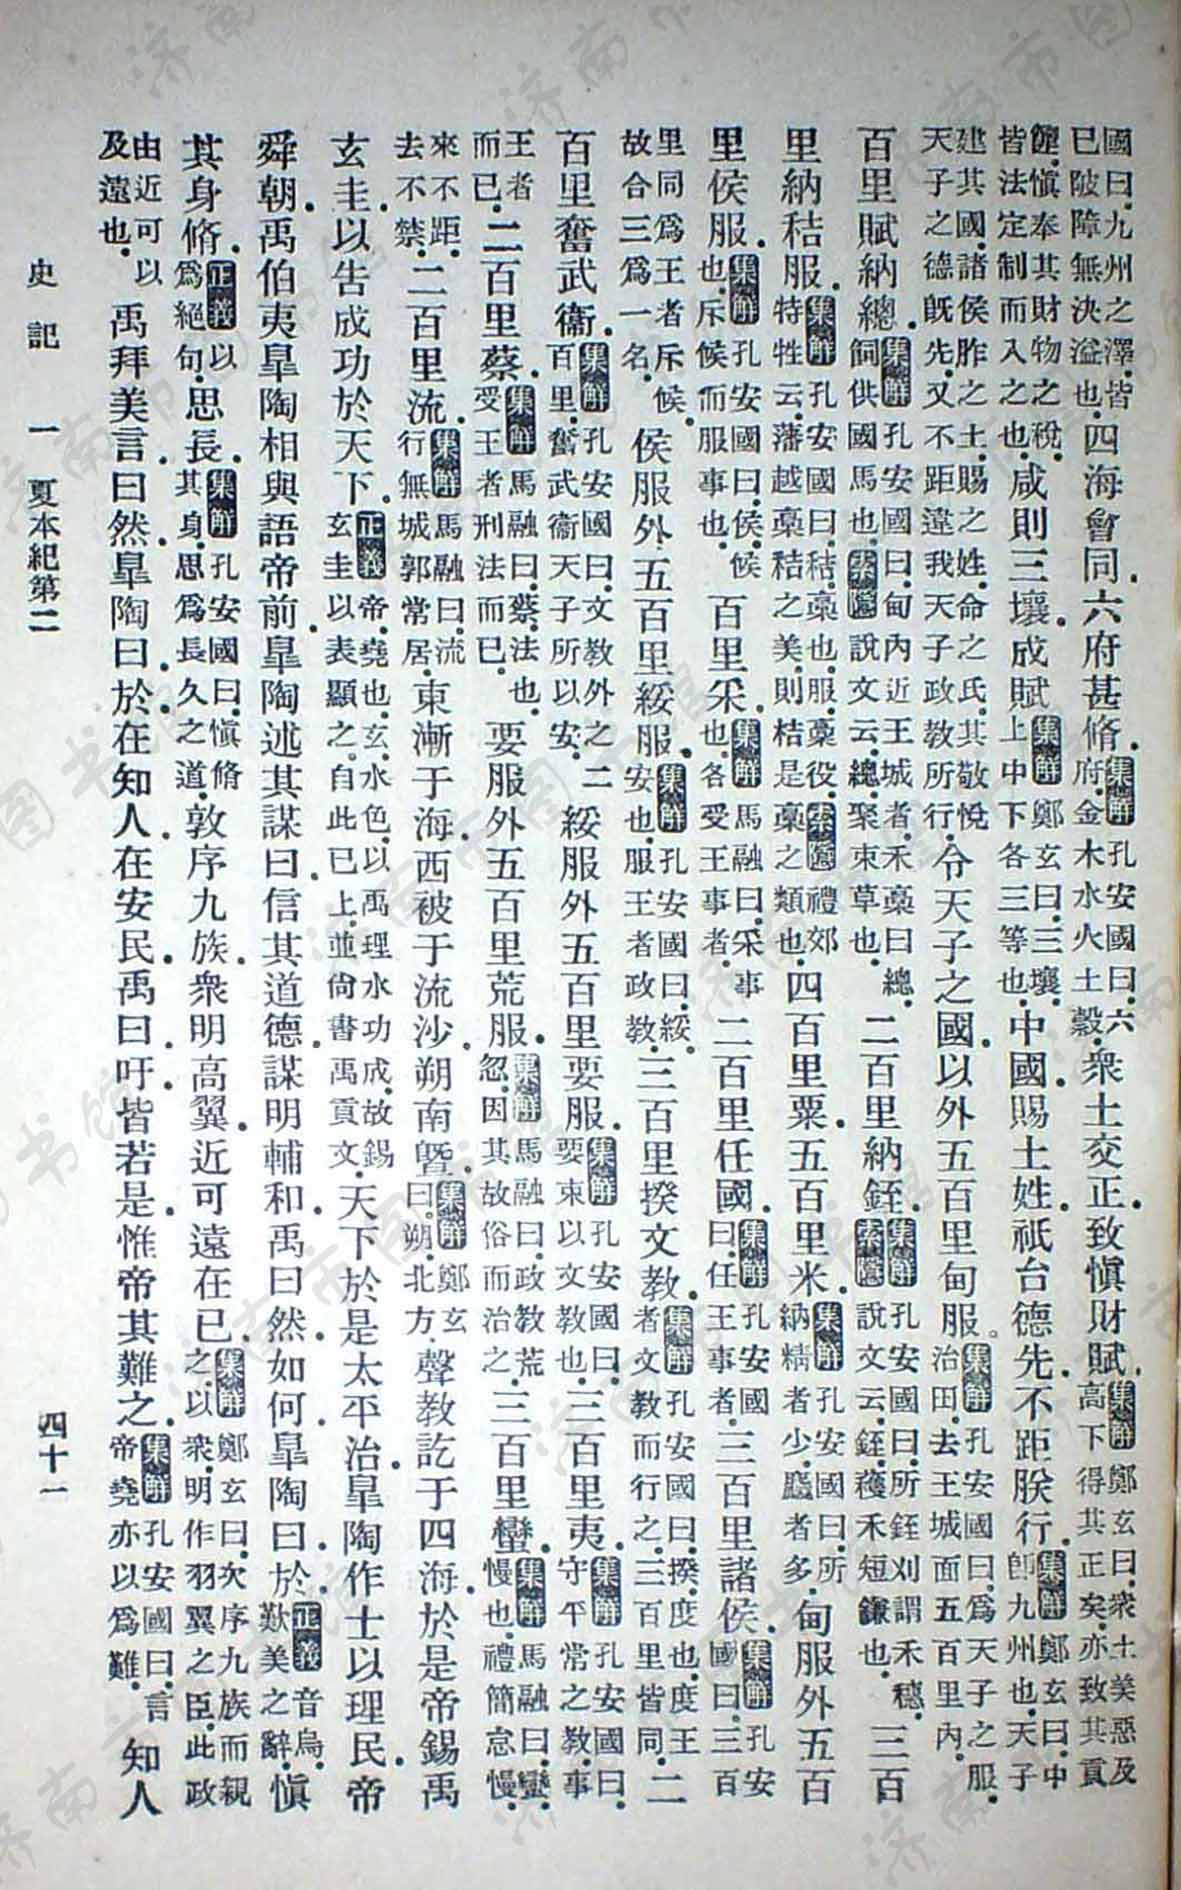 國曰。九州之澤。皆已陂障無決溢也。四海會同。六府甚脩。集解孔安國曰。六府。金木水火土穀。衆土交正。致愼財賦。集解鄭玄曰。衆土美惡及高下得其正矣。亦致其貢
篚。愼奉其財物之稅。皆法定制而入之也。咸則三壤。成賦集解鄭玄曰。三壤。上中下各三等也。中國。賜土姓。祇台德先。不距朕行。集解鄭玄曰。中卽九州也。天子
建其國。諸侯胙之土。賜之姓。命之氏。其敬悅天子之德旣先。又不距違我天子政教所行。令天子之國。以外五百里甸服。集解孔安國曰。爲天子之服治田。去王城面五百里內。
百里賦納總。集解孔安國曰。甸內近王城者。禾稾曰總。飼供國馬也。索隱說文云。總。聚束草也。二百里納銍。集解孔安國曰。所銍刈謂禾穗。索隱說文云。銍。穫禾短鎌也。三百
里納秸服。集解孔安國曰。秸。稾也。服。稾役。索隱禮郊特牲云。藩越稾秸之美。則桔是稾之類也。四百里粟。五百里米。集解孔安國曰。所納精者少。麤者多。甸服外五百
里侯服。集解孔安國曰。侯。候也。斥候而服事也。百里采。集解馬融曰。采。事也。各受王事者。二百里任國。集解孔安國曰。任王事者。三百里諸侯。集解孔安國曰。三百
里同爲王者斥候。故合三爲一名。侯服外五百里綏服。集解孔安國曰。綏。安也。服王者政教。三百里揆文教。集解孔安國曰。揆。度也。度王者文教而行之。三百里皆同。二
百里奮武衞。集解孔安國曰。文教外之二百里奮武衞。天子所以安。綏服外五百里要服。集解孔安國曰。要束以文教也。三百里夷。集解孔安國曰。守平常之教。事
王者而已。二百里蔡。集解馬融曰。蔡。法也。受王者刑法而已。要服外五百里荒服。集解馬融曰。政教荒忽。因其故俗而治之。三百里蠻。集解馬融曰。蠻。慢也。禮簡怠慢。
來不距。去不禁。二百里流。集解馬融曰。流行無城郭常居。東漸于海。西被于流沙。朔南曁。集解鄭玄曰。朔。北方。聲教訖于四海。於是帝錫禹
玄圭。以告成功於天下。正義帝。堯也。玄。水色。以禹理水功成。故錫玄圭以表顯之。自此已上。並尙書禹貢文。天下於是太平治。皐陶作士以理民。帝
舜朝。禹伯夷皐陶相與語帝前。皐陶述其謀曰。信其道德。謀明輔和。禹曰。然。如何。皐陶曰。於。正義音烏。歎美之辭。愼
其身脩。正義以爲絕句。思長。集解孔安國曰。愼脩其身。思爲長久之道。敦序九族。衆明高翼。近可遠在已。集解鄭玄曰。次序九族而親之。以衆明作羽翼之臣。此政
由近可以及遠也。禹拜美言。曰然。皐陶曰。於。在知人。在安民。禹曰。吁。皆若是。惟帝其難之。集解孔安國曰。言帝堯亦以爲難。知人
史記　一　夏本紀第二　四十一